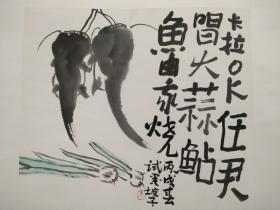 卡拉OK任君
唱大蒜鲇
鱼家烧
丙戌其
试笔